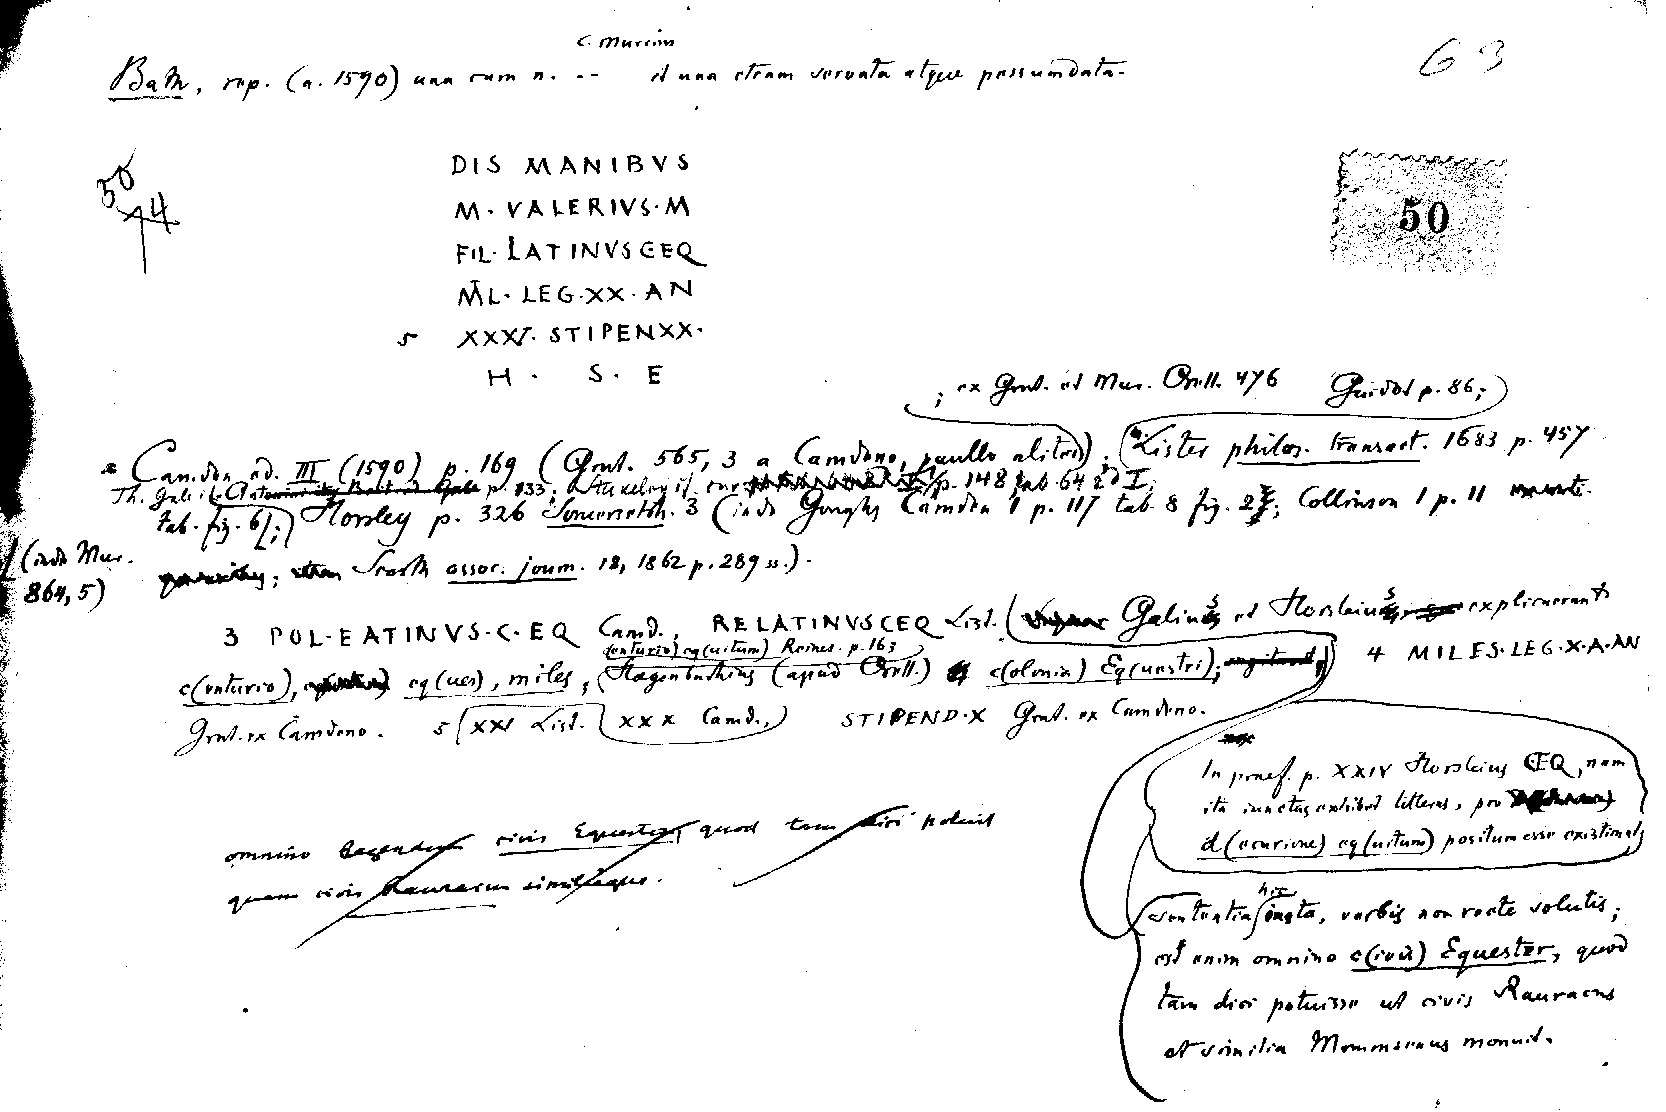 C. Murrius
63
Bath, rep. (a. 1590) una cum n. -- et una etiam servata atque pessumdata.
50
4
DIS MANIBVS
M. VALERIVS. M
50
FIL. LATINVS C EQ
MIL. LEG. XX. AN
5 XXXV. STIPEN XX.
H. S. E
; ex Grut. et Mur. Orell. 476 Guidot p. 86;)
Camden ed. III (1590) p. 169 (Grut. 565, 3 a Camdeno, paullo aliter). (Lister philos. transact. 1683 p. 457
Th. Gale it. p. 133; Stukeley it. cur p. 148 tab 64 ed I;
tab. fig. 6); Horsley p. 326 Somerseth. 3 (inde Goughs Camden 1 p. 117 tab 8 fig. 2; Collinson 1 p. 11
(inde Mur.
864, 5)
Scarth assoc. journ. 18, 1862 p. 289 ss.).
3 POL. EATINVS. C. EQ Camd., RELATINVSCEQ List. ( Galius et Horsleius explicuerunt
c(enturio) eq(uitum) Reines. p. 163
4 MILES. LEG. X. A. AN
c(enturio), eq(ues), miles, Hagenbuchius (apud Orell.) c(olonia) Eq(uestri);
Grut. ex Camdeno. 5 XXV List. XXX Camd., STIPEND. X Grut. ex Camdeno.
In praef. p. XXIV Horsleius CEQ, nam
ita iunctas exhibet litteras, pro
d(ecurione) eq(uitum) positum esse existimat;
omnino legendum civis Equester, quod tam dici potuit
quam civis Rauracus similiaque.
hic
sententia iusta, verbis non recte solutis;
est enim omnino c(ivis) Equester, quod
tam dici potuisse ut civis Rauracus
et similia Mommsenus monuit.